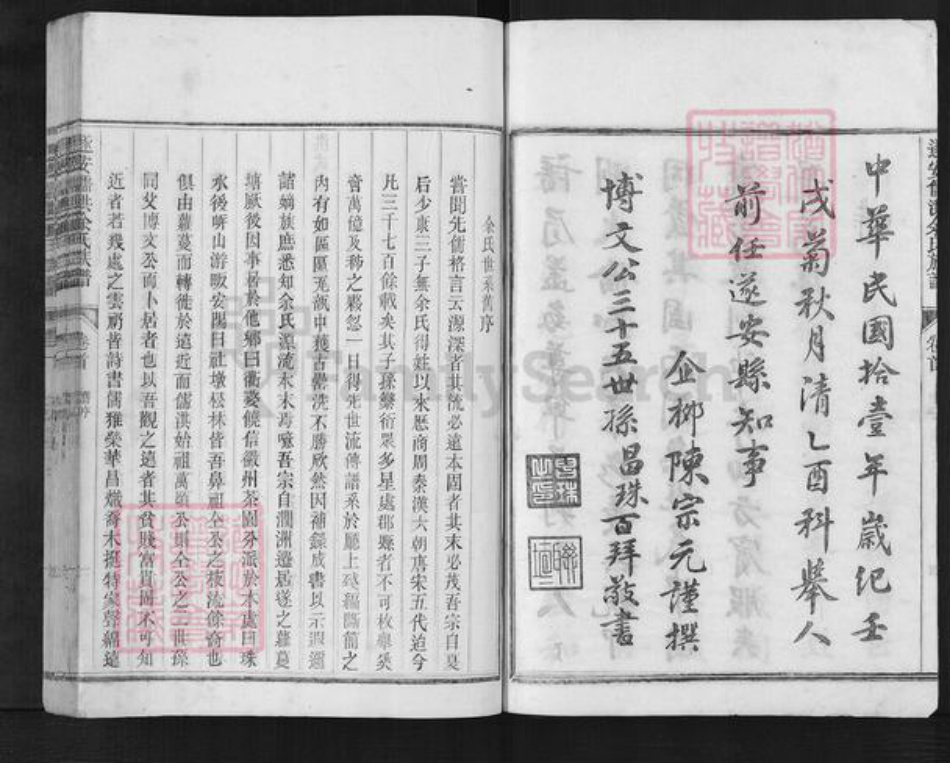 中華民國拾壹年歲紀壬
戌菊秋月清乙酉科舉人
前任遂安縣知事
企柳陳宗元謹撰
博文公三十五世孫昌珠百拜敬書
余氏世系舊序
嘗聞先儒格言云源深者其流必遠本固者其末必茂吾宗自夏
后少康三子無余氏得姓以來歷商周秦漢六朝唐宋五代迨今
凡三千七百餘載矣其子孫繁衍眾多星處郡縣者不可枚舉奚
啻萬億及秭之夥忽一日得先世流傳譜系於廳上殘編隱簡之
內有如區區瓦甑中獲古罍洗不勝欣然因補錄成書以示遐邇
諸嫡族庶悉知余氏源流末末焉噫吾宗自澗洲遷居遂之蘿蔓
塘厥後因事居於他鄉曰衢婺饒信徽州茶園分派於木處曰珠
水後嶀山游畈安陽曰社墩松林皆吾鼻祖仝公之枝流餘裔也
俱由蘿蔓而轉徙於遠近而儒洪始祖萬頃公則仝公之二世孫
同父博文公而卜居者也以吾觀之遠者其貧賤富貴固不可知
近者若幾處之雲礽皆詩書儒雅榮華昌熾喬木挺特家聲綿遠
遂安儒洪余氏族譜
卷首
舊序
FamilySearch